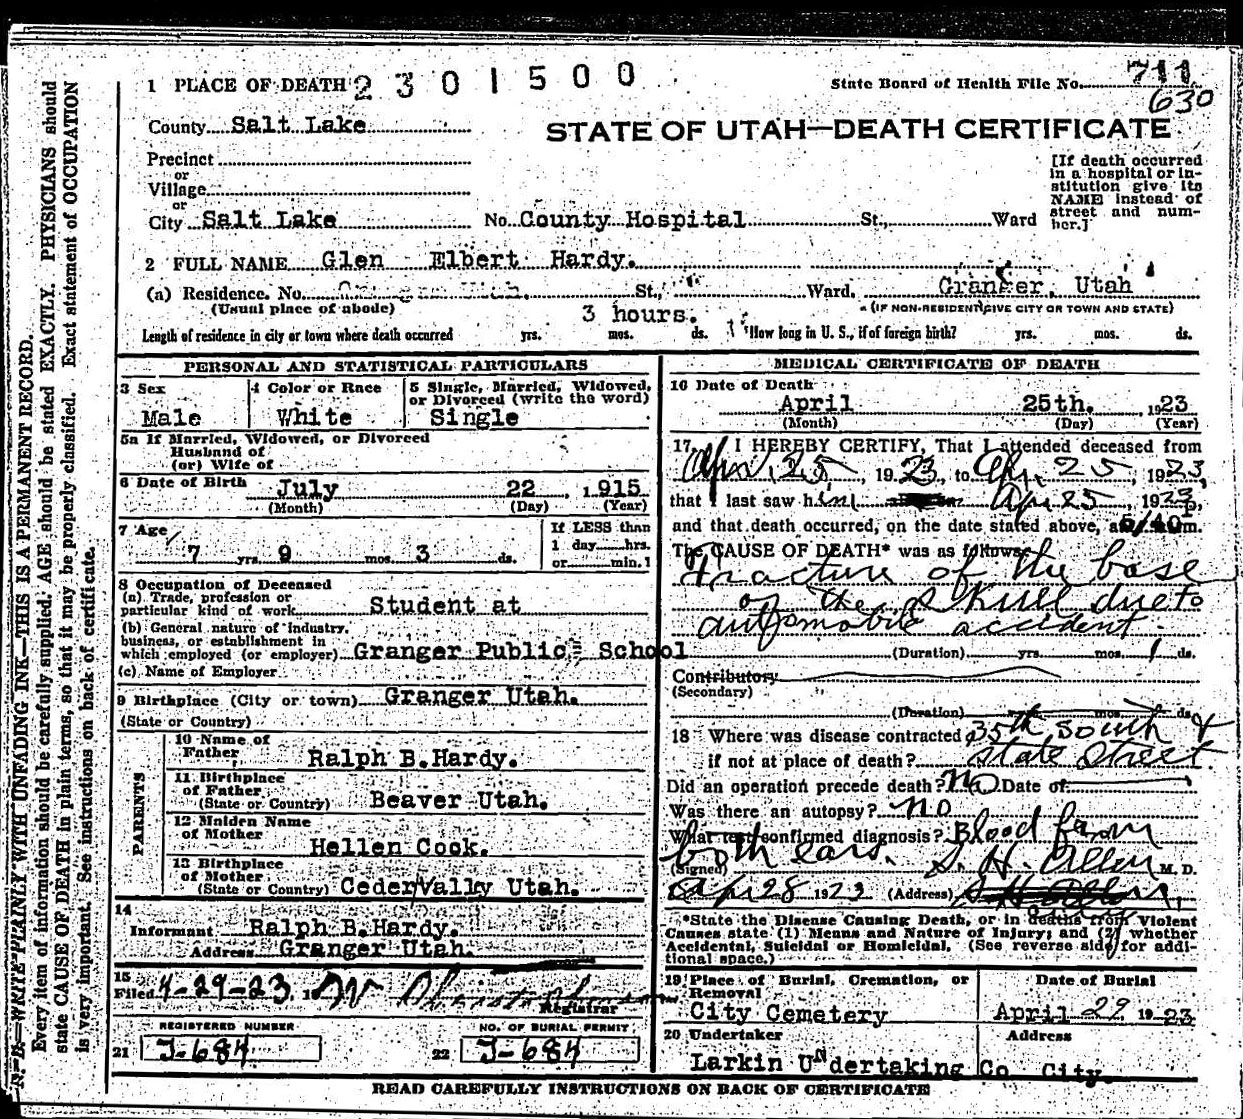 1 PLACE OF DEATH 2 3 0 1 5 0 0
State Board of Health File No. 711
630
County Salt Lake
STATE OF UTAH—DEATH CERTIFICATE
Precinct
or
Village
or
City Salt Lake No. County Hospital St., Ward
[If death occurred in a hospital or institution give its NAME instead of street and number.]
2 FULL NAME Glen Elbert Hardy.
(a) Residence. No. St., Ward. Granger, Utah
(Usual place of abode) (IF NON-RESIDENT GIVE CITY OR TOWN AND STATE)
3 hours.
Length of residence in city or town where death occurred yrs. mos. ds. How long in U. S., if of foreign birth? yrs. mos. ds.
PERSONAL AND STATISTICAL PARTICULARS
3 Sex 4 Color or Race 5 Single, Married, Widowed, or Divorced (write the word)
Male White Single
5a If Married, Widowed, or Divorced
Husband of
(or) Wife of
6 Date of Birth July 22, 1915
(Month) (Day) (Year)
7 Age If LESS than
7 yrs. 9 mos. 3 ds. 1 day hrs.
or min.1
8 Occupation of Deceased
(a) Trade, profession or
particular kind of work Student at
(b) General nature of industry,
business, or establishment in
which employed (or employer) Granger Public School
(c) Name of Employer
9 Birthplace (City or town) Granger Utah.
(State or Country)
PARENTS
10 Name of
Father, Ralph B.Hardy.
11 Birthplace
of Father
(State or Country) Beaver Utah.
12 Maiden Name
of Mother
Hellen Cook.
13 Birthplace
of Mother
(State or Country) Ceder Vally Utah.
14
Informant Ralph B.Hardy.
Address Granger Utah.
15
Filed 4-29-23, 1
Registrar
REGISTERED NUMBER NO. OF BURIAL PERMIT
21 J-684 22 J-684
MEDICAL CERTIFICATE OF DEATH
16 Date of Death
April 25th., 1923
(Month) (Day) (Year)
17. I HEREBY CERTIFY, That I attended deceased from
April 25, 1923, to Apr. 25, 1923,
that I last saw him Apr 25, 1923,
and that death occurred, on the date stated above, at 5/40 P m.
The CAUSE OF DEATH* was as follows:
Fracture of the base
of the skull due to
automobile accident.
(Duration) yrs. mos. 1 ds.
Contributory
(Secondary)
(Duration) yrs. mos. ds.
18 Where was disease contracted 35th South &
if not at place of death? State Street.
Did an operation precede death? No Date of
Was there an autopsy? no
What test confirmed diagnosis? Blood from
both ears.
(Signed) S. H. Allen M. D.
Apr 28 1923 (Address)
*State the Disease Causing Death, or in deaths from Violent
Causes state (1) Means and Nature of Injury; and (2) whether
Accidental, Suicidal or Homicidal. (See reverse side for addi-
tional space.)
19 Place of Burial, Cremation, or Removal Date of Burial
City Cemetery April 29 1923
20 Undertaker Address
Larkin Undertaking Co. City.
READ CAREFULLY INSTRUCTIONS ON BACK OF CERTIFICATE
N. B.—WRITE PLAINLY WITH UNFADING INK—THIS IS A PERMANENT RECORD.
Every item of information should be carefully supplied. AGE should be stated EXACTLY. PHYSICIANS should
state CAUSE OF DEATH in plain terms, so that it may be properly classified. Exact statement of OCCUPATION
is very important. See instructions on back of certificate.